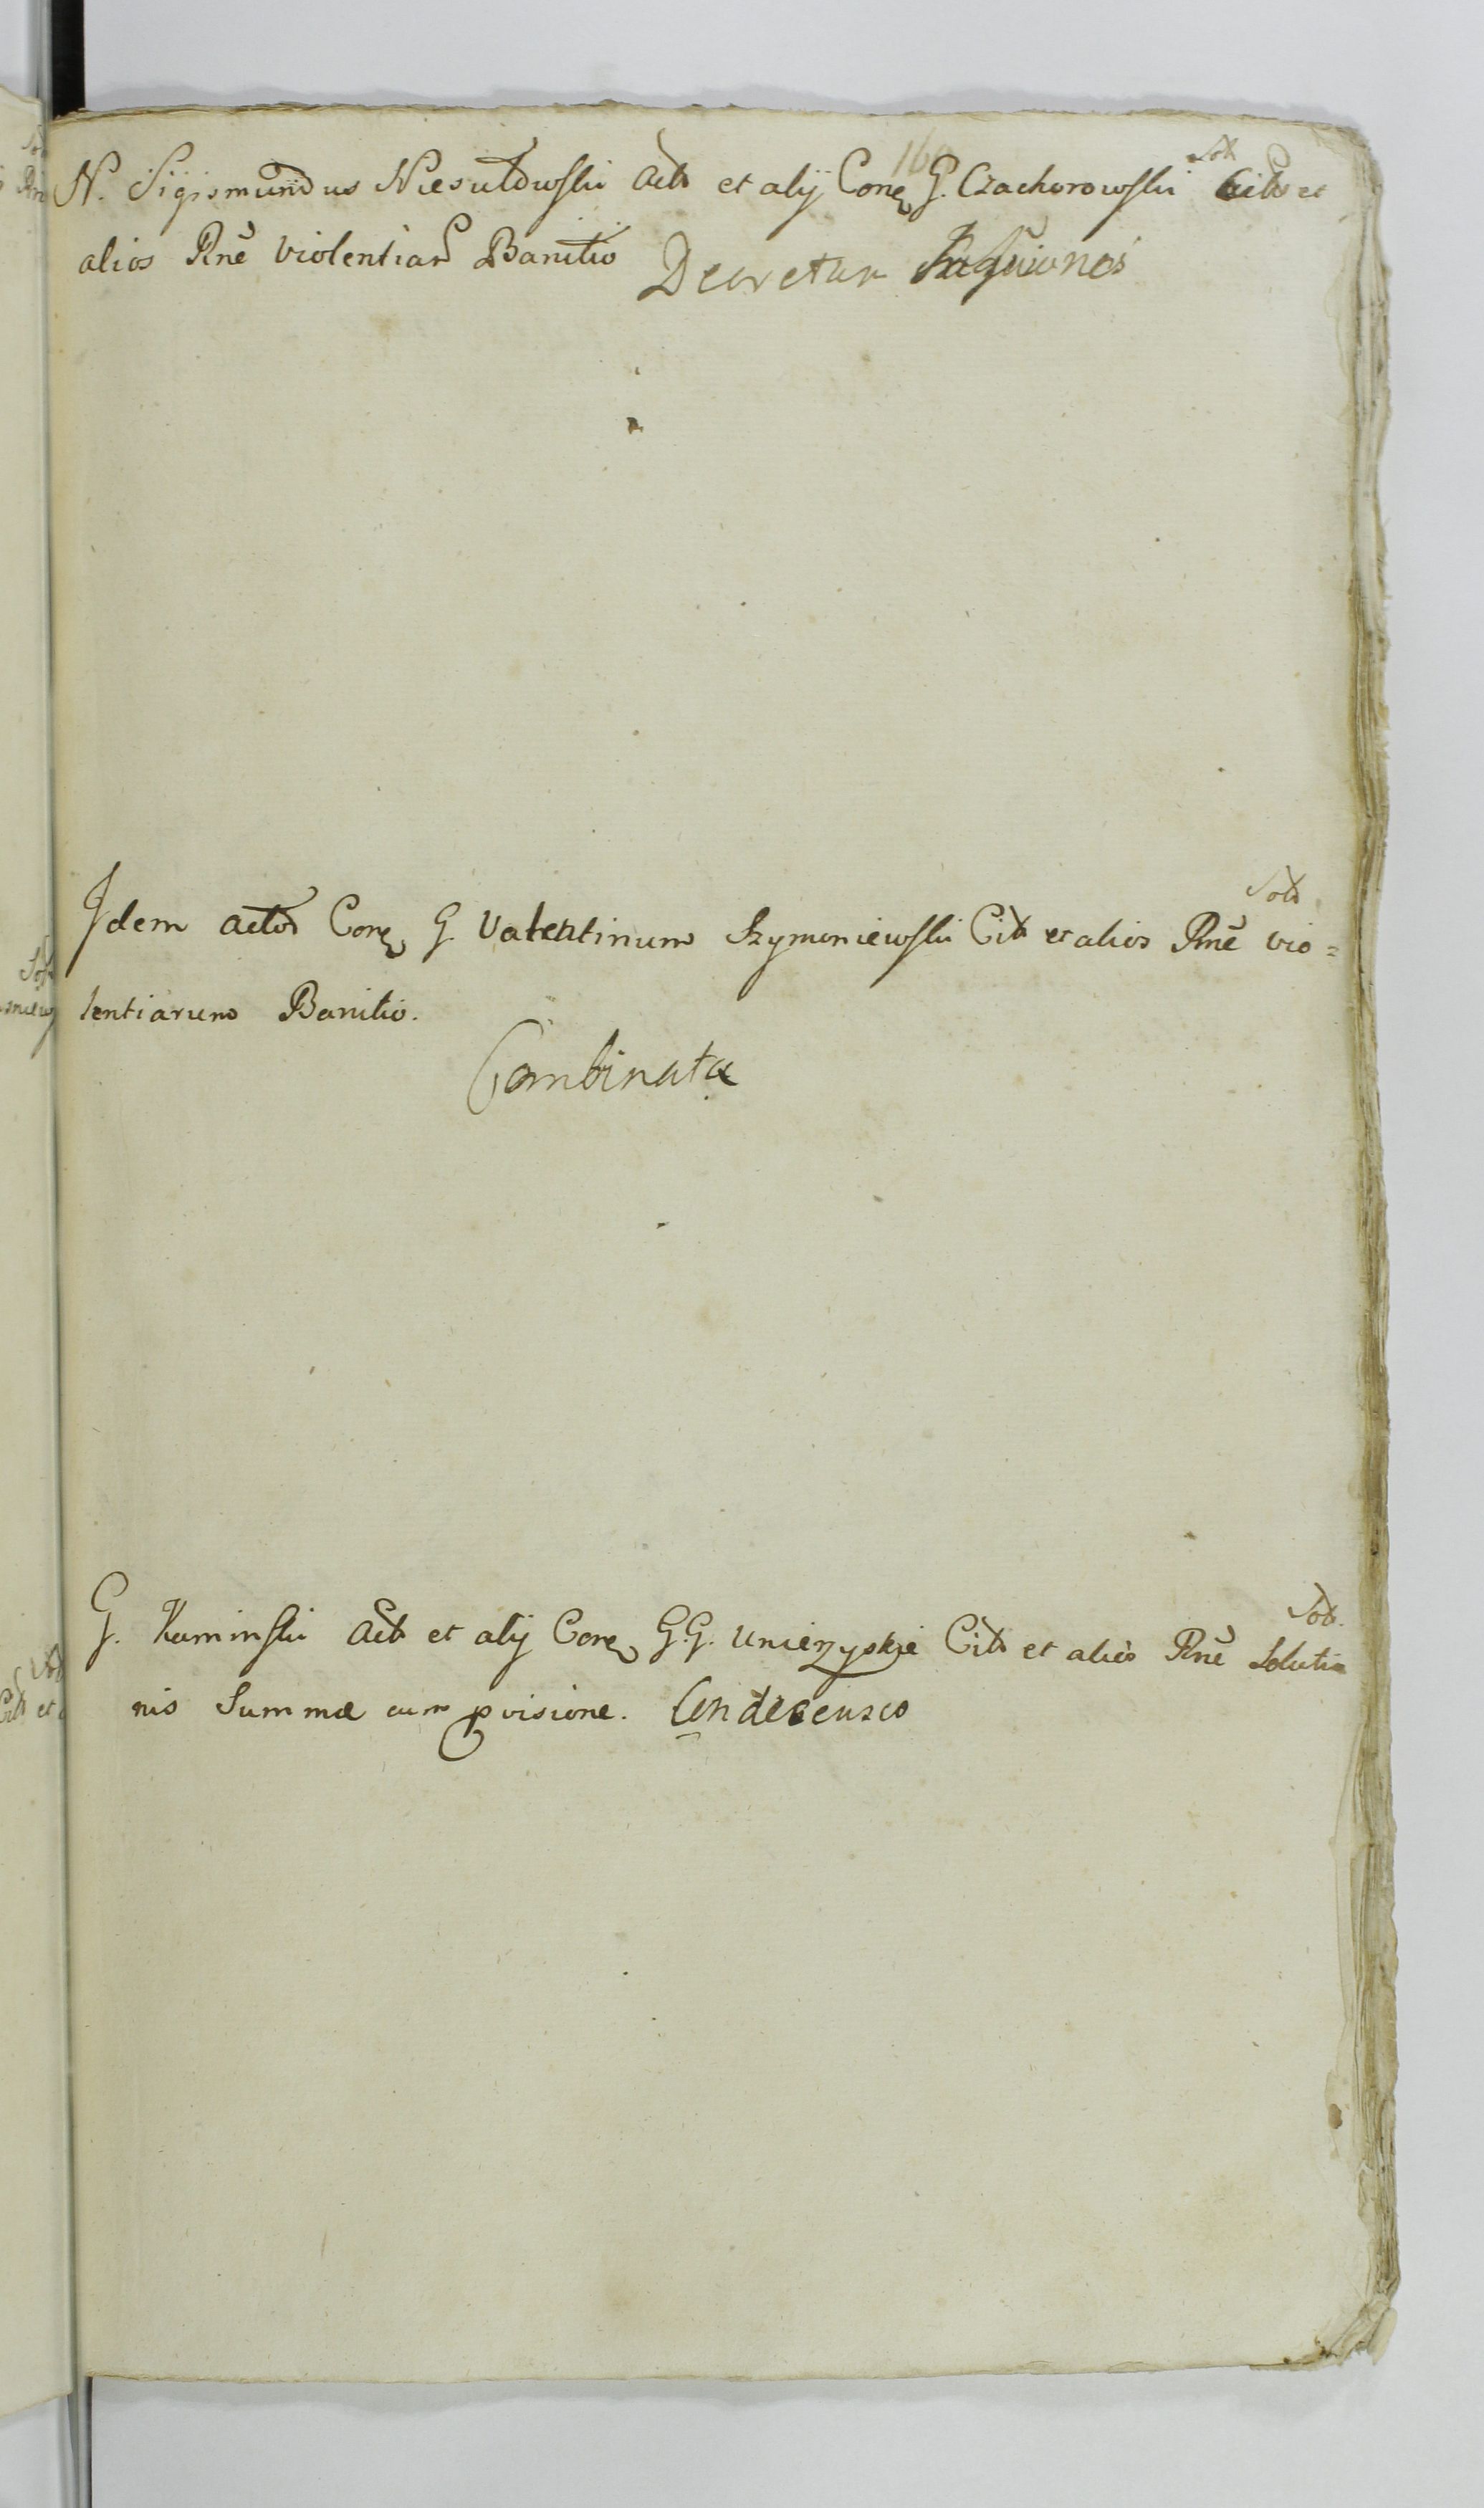 Sot
N. Sigismundus Niesułowski Act et alij Cone G. Czachorowski Cit et
alios Rne violentiar Banitio Decretum
Sot
Idem Actor Cone G. Valentinum Szymoniewski Cit et alios Rne vio=
lentiarum Banitio.
Combinata
Sot.
G. Kaminski Act et alij Cone G.G. Unierzyskie Cit et alios Rne Solutio
nis Summæ cum pvisione. Condescensio